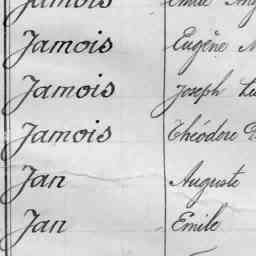 Jamois Emile
Jamois Eugène
Jamois Joseph
Jamois Théodore
Jan Auguste
Jan Emile